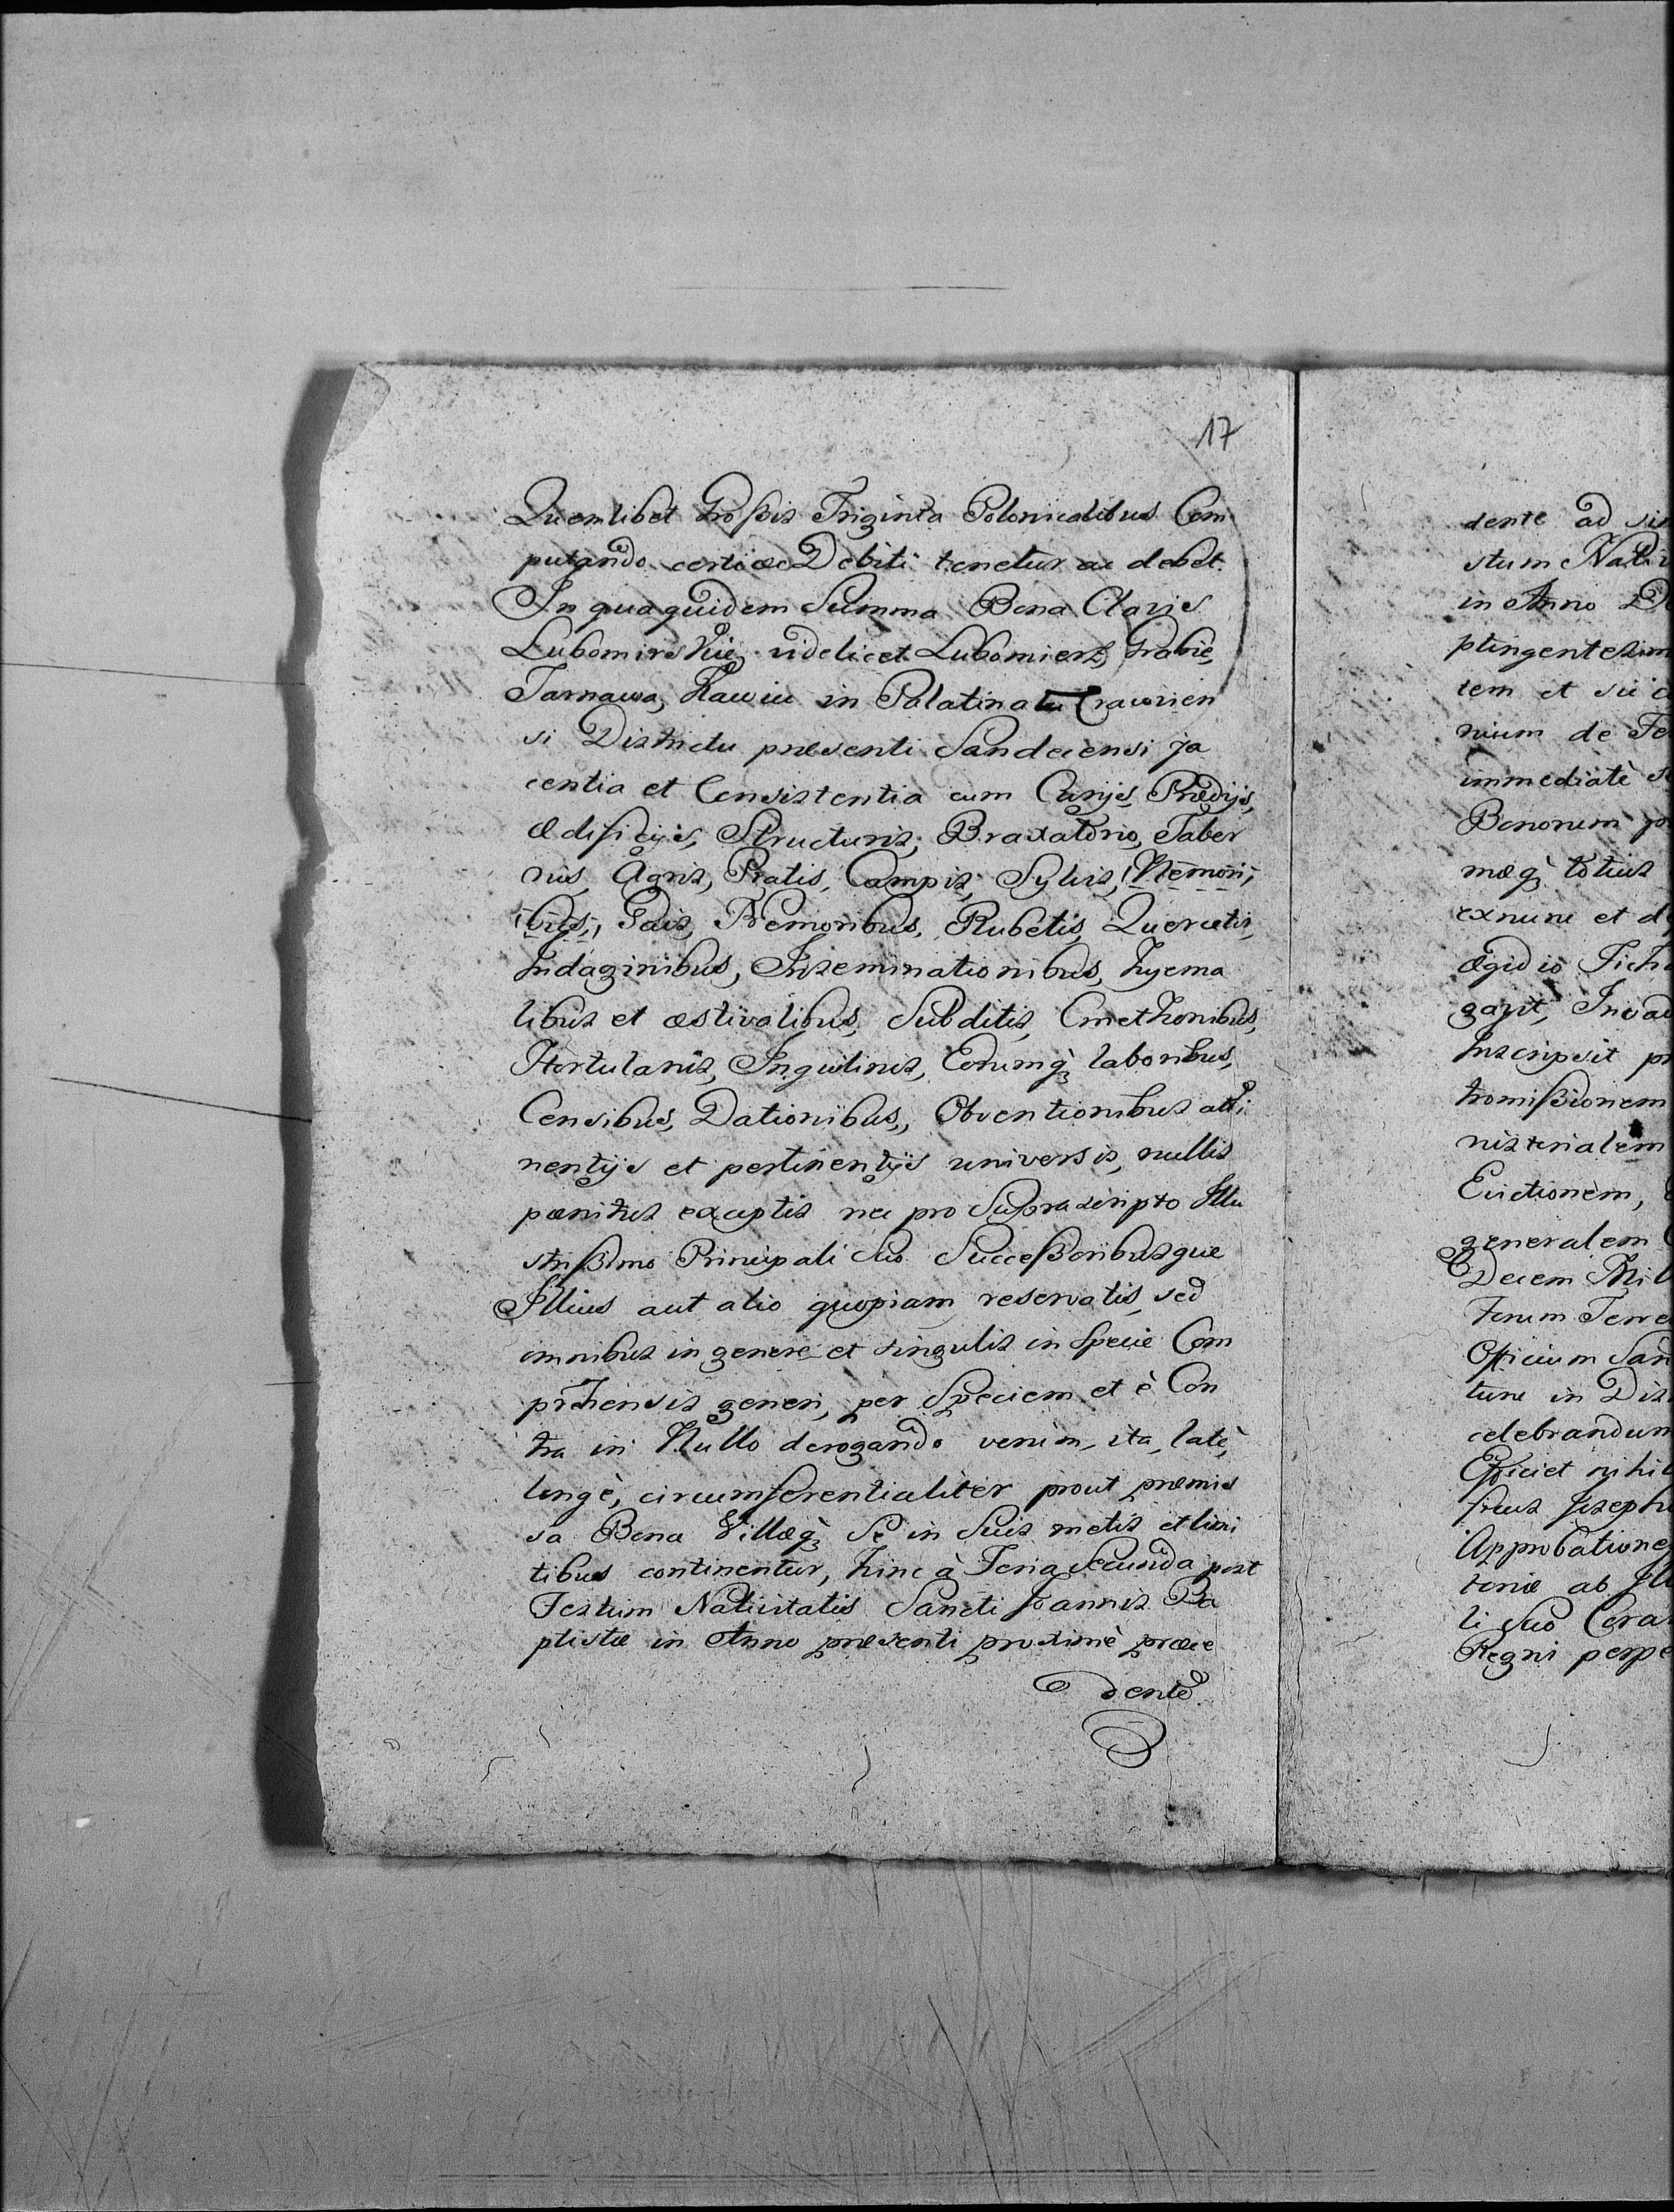 17
Quemlibet Großis Triginta Polonicalibus Com
putando certi ac Debiti tenetur ac debet.
In qua quidem Summa Bona Clavis
Lubomirskie videlicet Lubomierz, Grabie,
Tarnawa, in Palatinatu Cracovien
si Districtu præsenti Sandecensi ja
centia et Consistentia cum Curijs Prædijs,
ædificijs, Structuris, Braxatorio, Taber
nis, Agris, Pratis, Campis, Sylvis, Nemori,
bus, Nemoribus, Rubetis, Quercetis,
Indaginibus, Inseminationibus, hyema
libus et æstivalibus, Subditis, Cmethonibus,
Hortulanis, Inquilinis, Eorumq; laboribus,
Censibus, Dationibus, Obventionibus atti
nentijs et pertinentijs universis, nullis
pænitus exceptis nec pro Suprascripto Illu
strißimo Principali Suo Succeßoribusque
Illius aut alio quopiam reservatis, sed
omnibus in genere et singulis in Specie Com
prehensis generi, per Speciem et è Con
tra in Nullo derogando verum, ita, latè,
longè, circumferentialiter prout præmis
sa Bona Villæq; Se in Suis metis et limi
tibus continentur, hinc à Feria Secunda post
Festum Nativitatis Sancti Joannis Ba
ptistæ in Anno præsenti proximè præce
dente.
dente ad
stum Nativ
in Anno D
ptingentesim
tem et sic
nium de Fe
immediatè
Bonorum
mæq; totius
exnunc et
Ægidio
Invad
Inscripsit
tromißionem
nisterialem
Evictionem,
generalem
Decem Mil
Terre
Officium San
tunc in Dis
celebrandum
Efficiet nihil
Approbatione
ab
li Suo Cora
Regni perpe